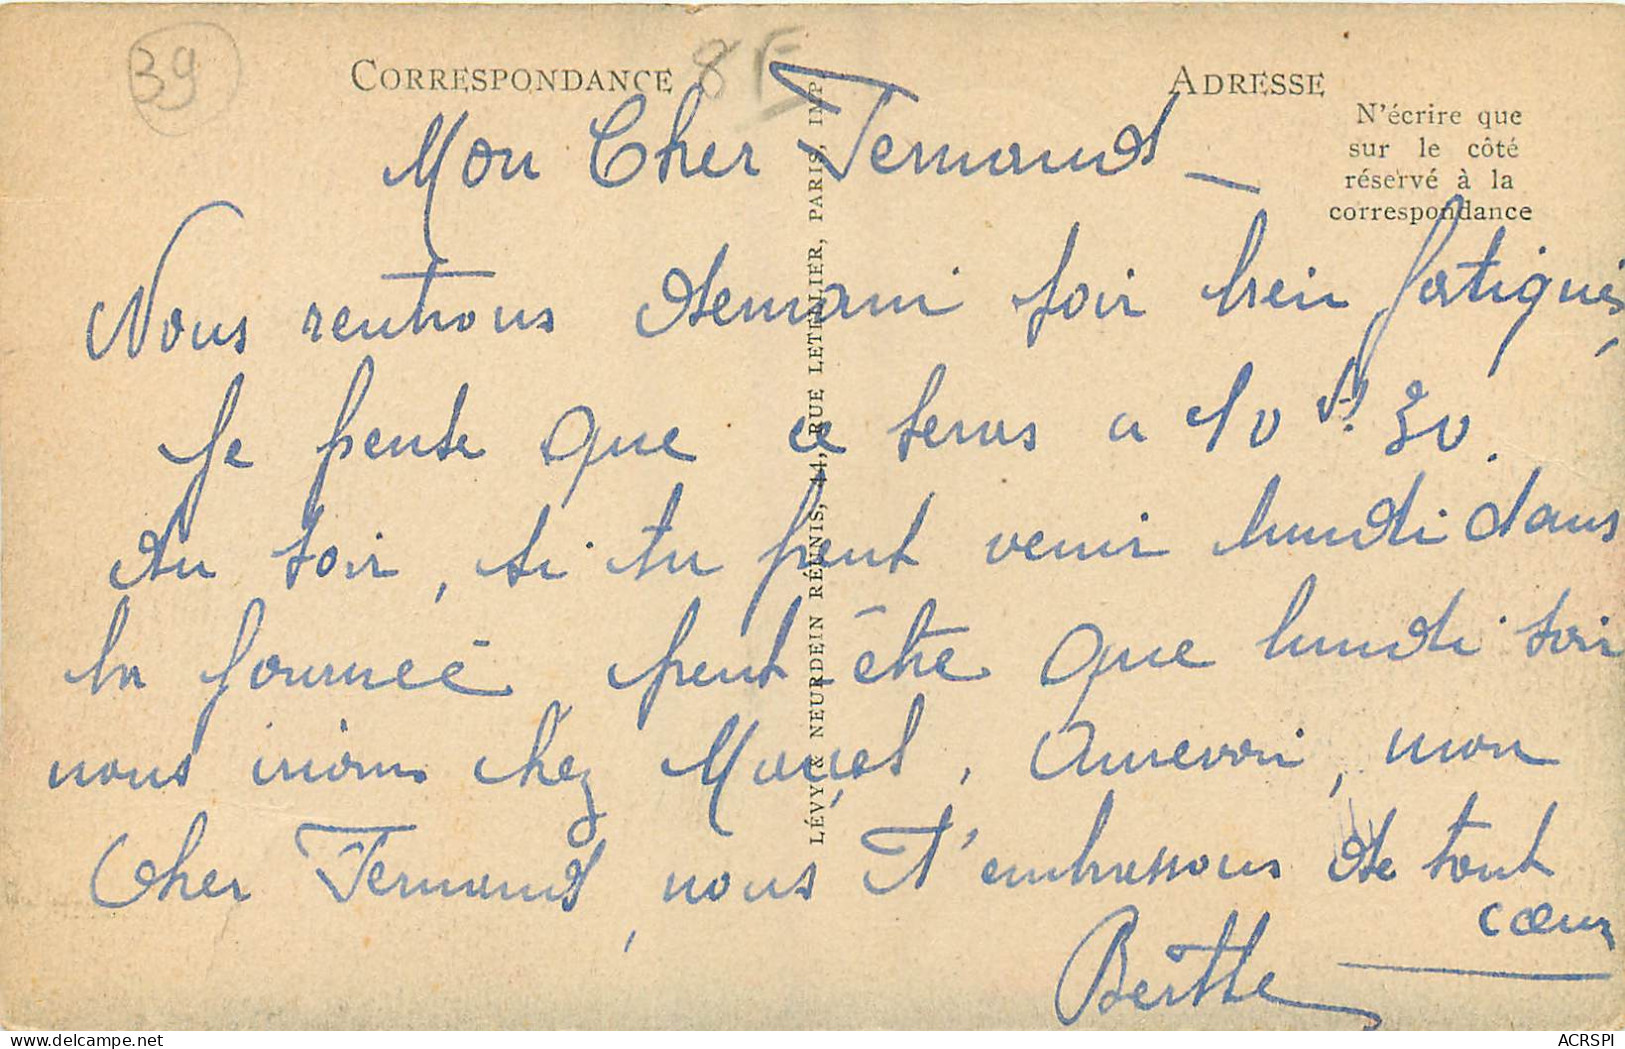 39
8F
CORRESPONDANCE
ADRESSE
N'écrire que
sur le côté
réservé à la
correspondance
LÉVY & NEURDEIN RÉUNIS, 44, RUE LETELLIER, PARIS, IMP.
Mon Cher Fernand _
Nous rentrons demain soir bien fatigués,
Je pense que ce seras a 10 h 30.
du soir, si tu peut venir lundi dans
la journeé peut-être que lundi soir
nous irions chez . Aurevoir, mon
Cher Fernand, nous t'embrassons de tout
cœur
Berthe
delcampe.net
ACRSPI